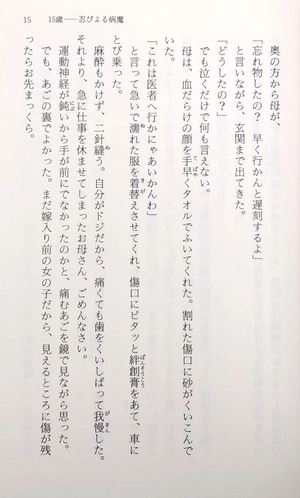 15　15歳——忍びよる病魔
奥の方から母が、
「忘れ物したの？　早く行かんと遅刻するよ」
と言いながら、玄関まで出てきた。
「どうしたの？」
でも泣くだけで何も言えない。
母は、血だらけの顔を手早くタオルでふいてくれた。割れた傷口に砂がくいこんで
いた。
「これは医者へ行かにゃあいかんわ」
と言って急いで濡れた服を着替えさせてくれ、傷口にピタッと絆創膏をあて、車に
とび乗った。
麻酔もかけず、二針縫う。自分がドジだから、痛くても歯をくいしばって我慢した。
それより、急に仕事を休ませてしまったお母さん、ごめんなさい。
運動神経が鈍いから手が前にでなかったのかと、痛むあごを鏡で見ながら思った。
でも、あごの裏でよかった。まだ嫁入り前の女の子だから、見えるところに傷が残
ったらお先まっくら。